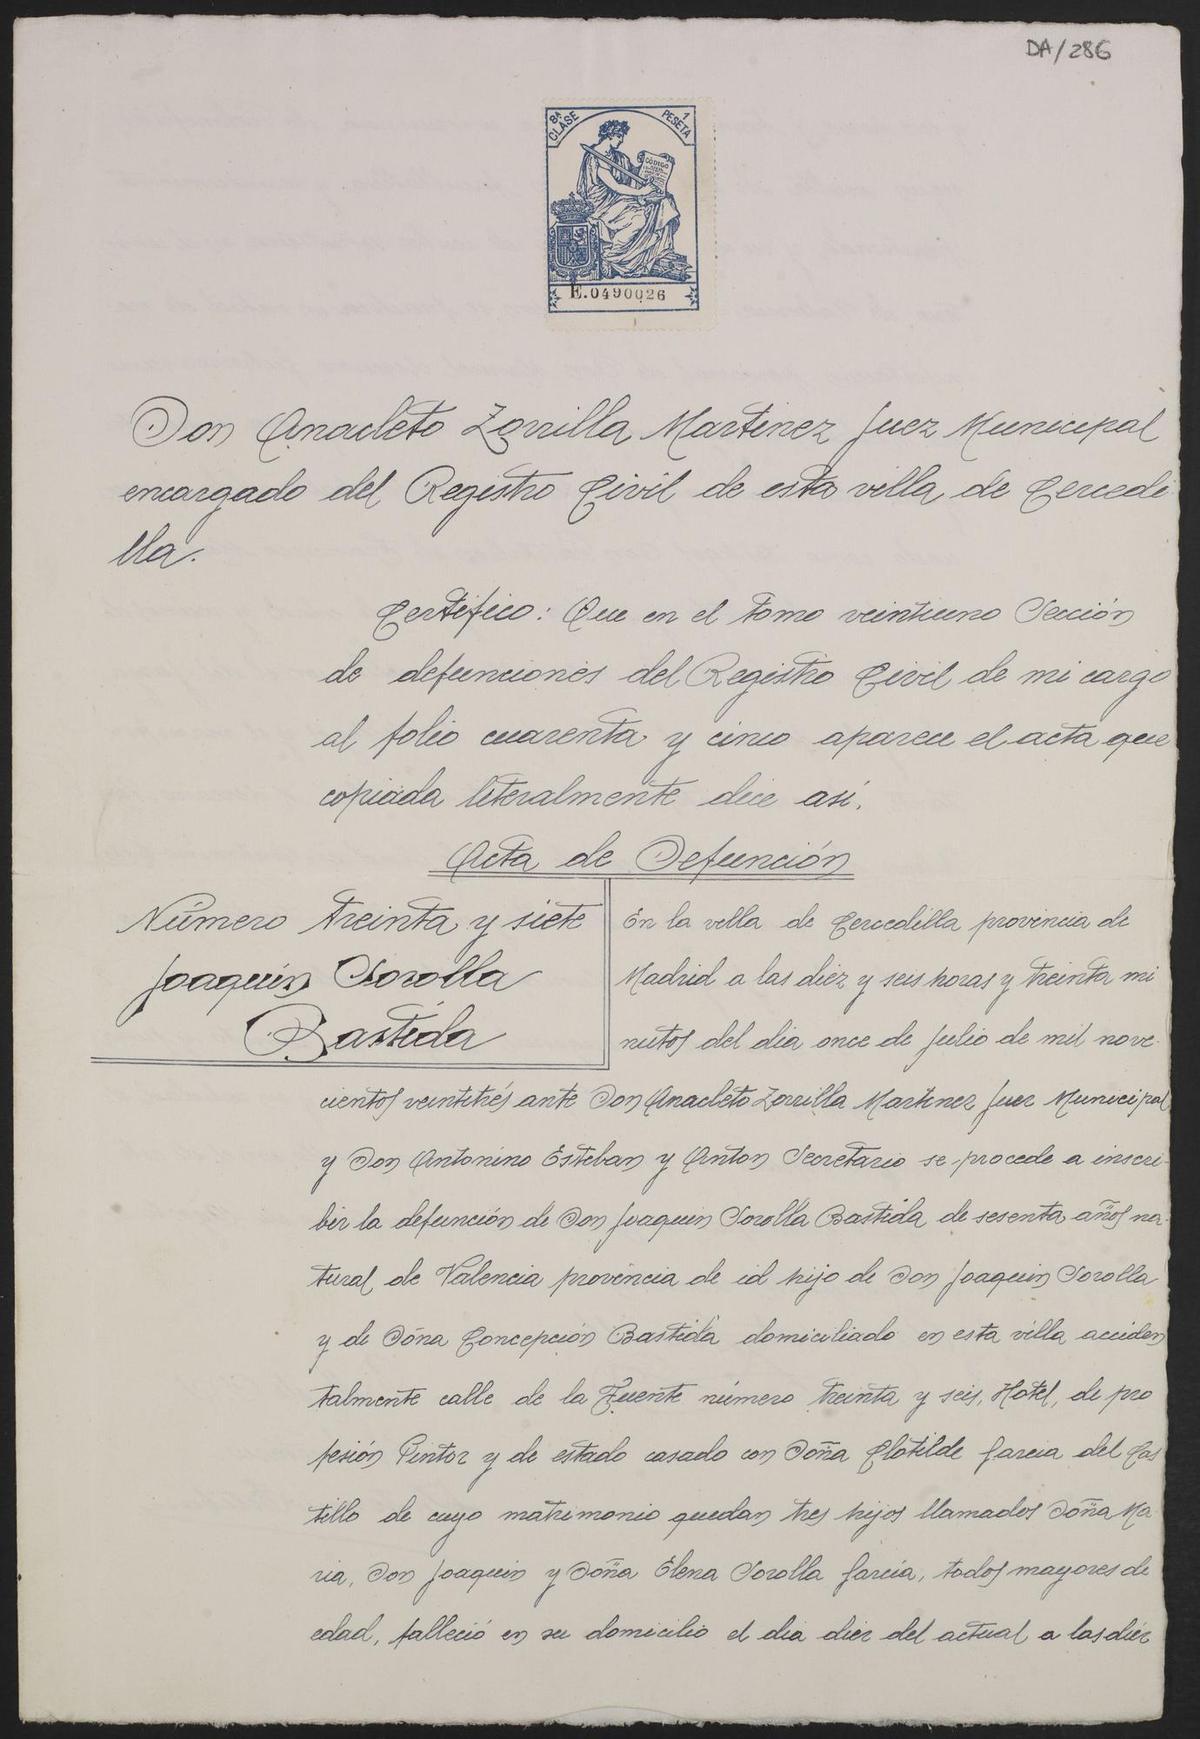 DA/286
8ª CLASE
1 PESETA
CÓDIGO
E.0490026
Don Anacleto Zorrilla Martinez Juez Municipal
encargado del Registro Civil de esta villa de Cercedi
lla.
Certifico: Que en el tomo veintiuno Sección
de defunciones del Registro Civil de mi cargo
al folio cuarenta y cinco aparece el acta que
copiada literalmente dice asi.
Acta de Defunción
Número treinta y siete
Joaquín Sorolla
Bastida
En la villa de Cercedilla provincia de
Madrid a las diez y seis horas y treinta mi
nutos del dia once de Julio de mil nove-
cientos veintitrés ante Don Anacleto Zorrilla Martinez Juez Municipal
y Don Antonino Esteban y Anton Secretario se procede a inscri-
bir la defunción de Don Joaquin Sorolla Bastida de sesenta años na-
tural de Valencia provincia de id hijo de Don Joaquin Sorolla
y de Doña Concepción Bastida domiciliado en esta villa acciden
talmente calle de la Fuente número treinta y seis, Hotel, de pro
fesión Pintor y de estado casado con Doña Clotilde Garcia del Cas
tillo de cuyo matrimonio quedan tres hijos llamados Doña Ma-
ria, Don Joaquin y Doña Elena Sorolla García, todos mayores de
edad, falleció en su domicilio el dia diez del actual a las diéz